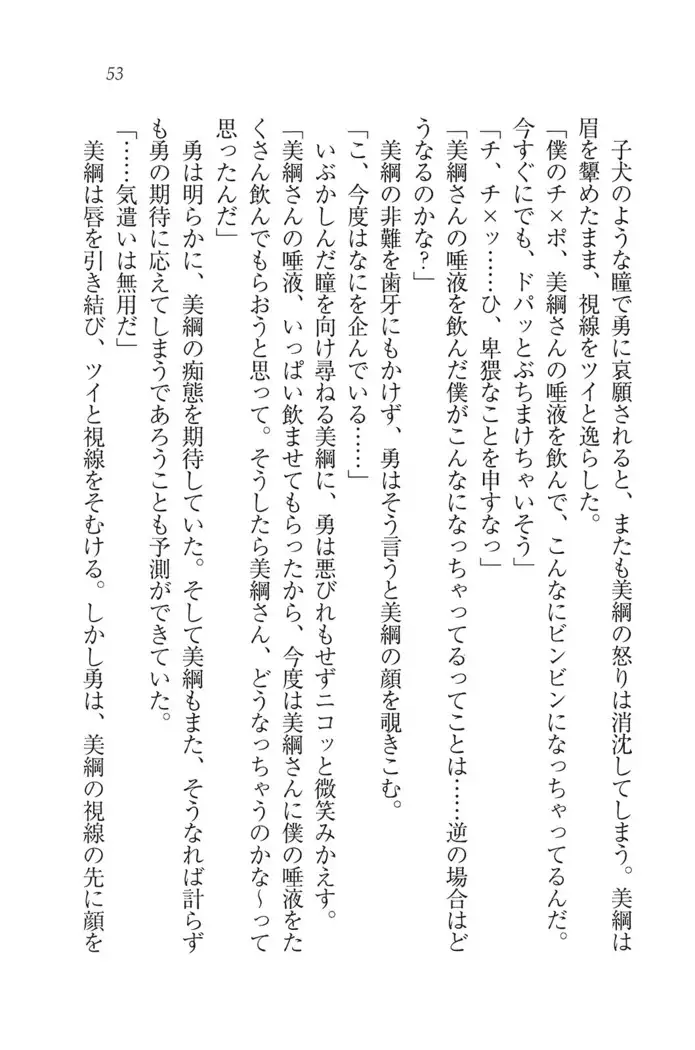 53
子犬のような瞳で勇に哀願されると、またも美綱の怒りは消沈してしまう。美綱は
眉を顰めたまま、視線をツイと逸らした。
「僕のチ×ポ、美綱さんの唾液を飲んで、こんなにビンビンになっちゃってるんだ。
今すぐにでも、ドパッとぶちまけちゃいそう」
「チ、チ×ッ……ひ、卑猥なことを申すなっ」
「美綱さんの唾液を飲んだ僕がこんなになっちゃってるってことは……逆の場合はど
うなるのかな？」
美綱の非難を歯牙にもかけず、勇はそう言うと美綱の顔を覗きこむ。
「こ、今度はなにを企んでいる……」
いぶかしんだ瞳を向け尋ねる美綱に、勇は悪びれもせずニコッと微笑みかえす。
「美綱さんの唾液、いっぱい飲ませてもらったから、今度は美綱さんに僕の唾液をた
くさん飲んでもらおうと思って。そうしたら美綱さん、どうなっちゃうのかな〜って
思ったんだ」
勇は明らかに、美綱の痴態を期待していた。そして美綱もまた、そうなれば計らず
も勇の期待に応えてしまうであろうことも予測ができていた。
「……気遣いは無用だ」
美綱は唇を引き結び、ツイと視線をそむける。しかし勇は、美綱の視線の先に顔を